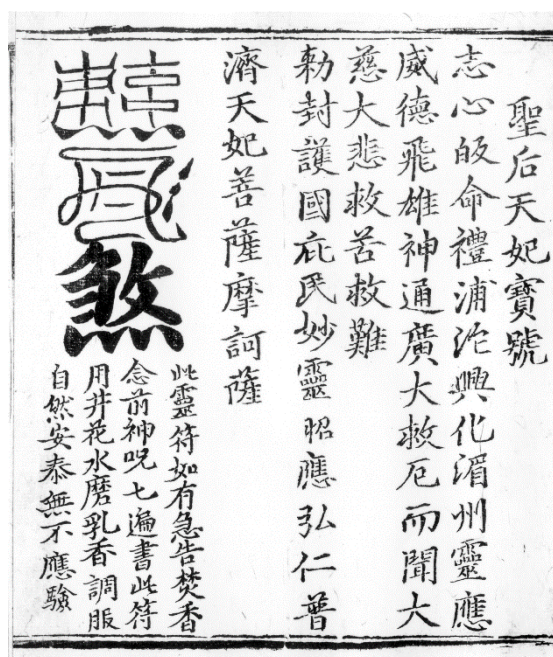 聖后天妃寶號
志心皈命禮浦沱興化湄州靈應
威德飛雄神通廣大救厄而聞大
慈大悲救苦救難
勅封護國庇民妙靈昭應弘仁普
濟天妃菩薩摩訶薩
煞
此靈符如有急告焚香
念前神呪七遍書此符
用井花水磨乳香調服
自然安泰無不應驗